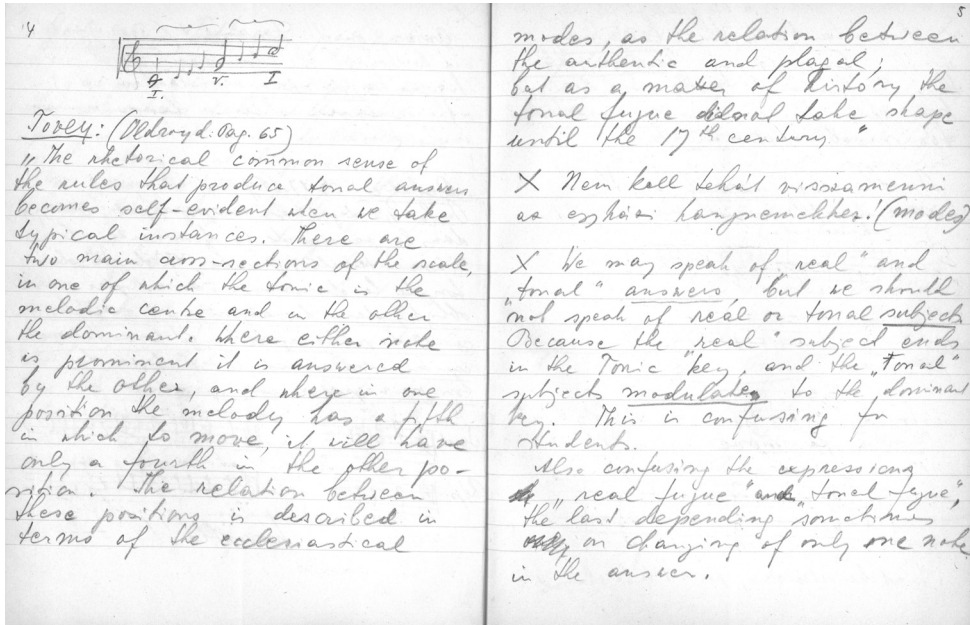 4
I. V. I
Tovey: (Oldroyd. Pag. 65)
„The rhetorical common sense of
the rules that produce tonal answers
becomes self-evident when we take
typical instances. There are
two main cross-sections of the scale,
in one of which the tonic is the
melodic centre and in the other
the dominant. Where either note
is prominent it is answered
by the other, and where in one
position the melody has a fifth
in which to move, it will have
only a fourth in the other po-
sition. The relation between
these positions is described in
terms of the ecclesiastical
5
modes, as the relation between
the authentic and plagal;
but as a matter of history the
tonal fugue did not take shape
until the 17th century."
X Nem kell tehát visszamenni
az egyházi hangnemekhez! (modes)
X We may speak of „real" and
„tonal" answers, but we should
not speak of real or tonal subject
Because the „real" subject ends
in the Tonic key, and the „Tonal"
subjects modulates to the dominant
key. This is confusing for
students.
Also confusing the expressions
„real fugue" and „tonal fugue",
the last depending sometimes
on changing of only one note
in the answer.